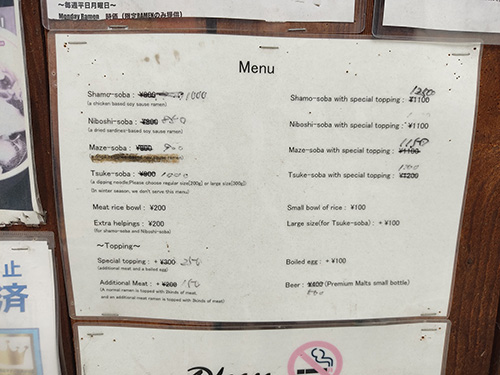 ~毎週平日月曜日~
Monday Ramen 時価 (限定RAMENのみ提供)
Menu
Shamo-soba : ¥900 1000
(a chicken based soy sauce ramen)
Shamo-soba with special topping : ¥1100 1200
Niboshi-soba : ¥800 850
(a dried sardines-based soy sauce ramen)
Niboshi-soba with special topping : ¥1100
Maze-soba : 900
Maze-soba with special topping : ¥1100 1150
Tsuke-soba : ¥900 1000
(a dipping noodle,Please choose regular size(200g) or large size(300g))
(In winter season, we don't serve this menu)
Tsuke-soba with special topping : ¥1200
Meat rice bowl : ¥200
Small bowl of rice : ¥100
Extra helpings : ¥200
(for shamo-soba and Niboshi-soba)
Large size(for Tsuke-soba) : +¥100
~Topping~
Special topping : +¥300 250
(additional meat and a boiled egg)
Boiled egg : +¥100
Additional Meat : +¥200 150
(A normal ramen is topped with 2kinds of meat,
and an additional meat ramen is topped with 3kinds of meat)
Beer : ¥400 (Premium Malts small bottle)
止
済